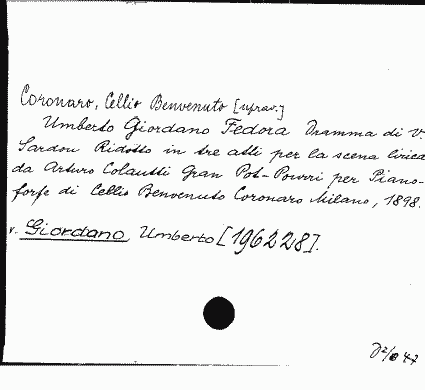 Coronaro, Cellio Benvenuto [uprav.]
Umberto Giordano Fedora Dramma di V.
Sardou Ridotto in tre atti per la scena lirica
da Arturo Colautti Gran Pot-Pourri per Piano-
forte di Cellio Benvenuto Coronaro Milano, 1898.
v. Giordano, Umberto [196228].